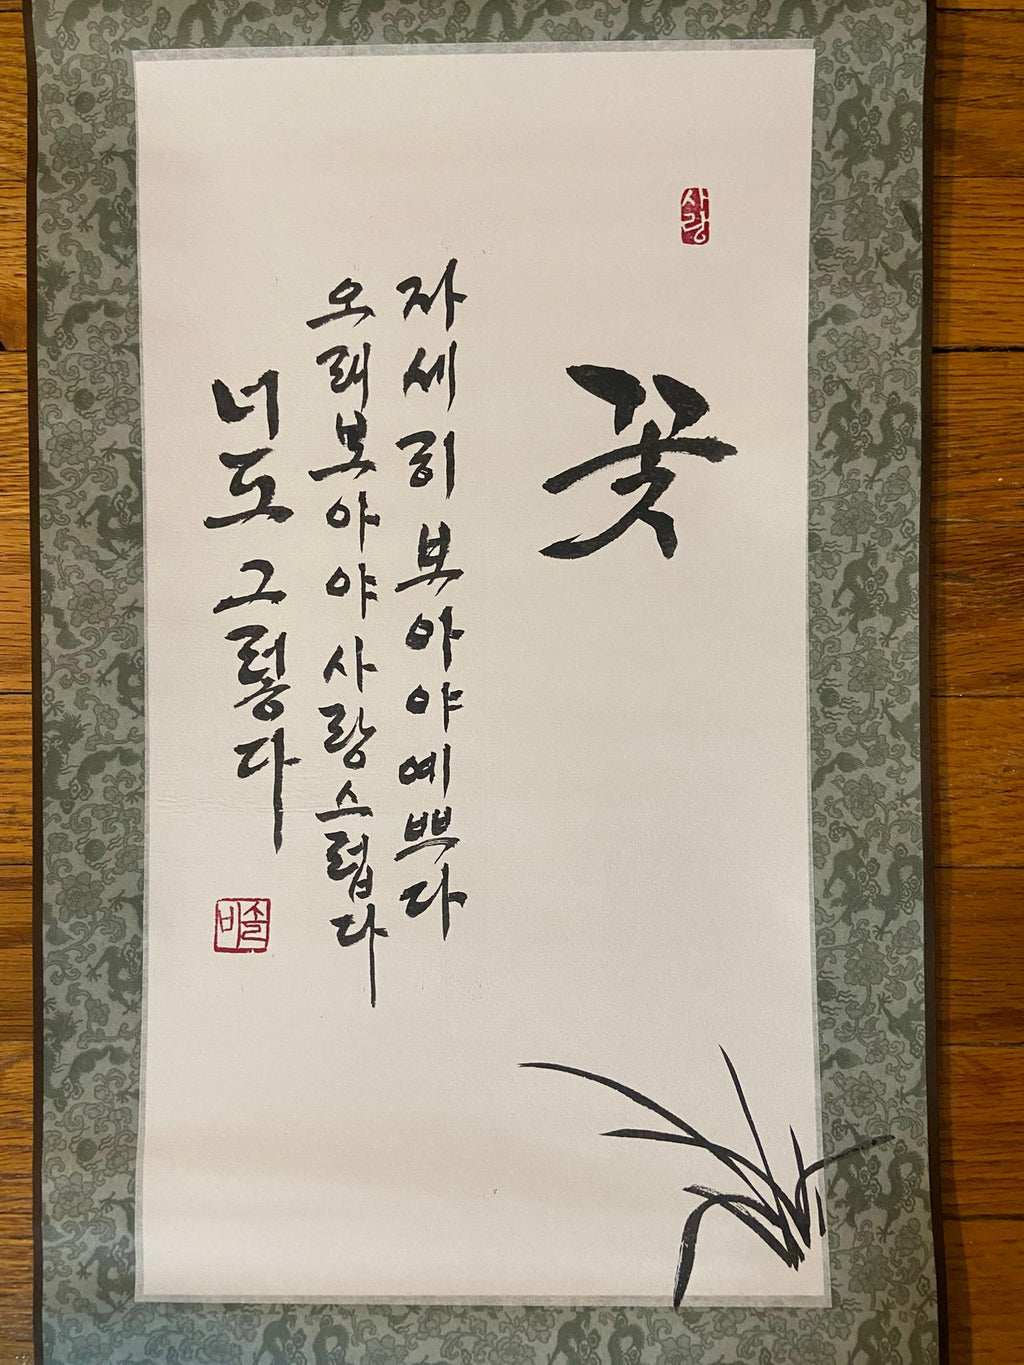 사랑
꽃
자세히 보아야 예쁘다
오래 보아야 사랑스럽다
너도 그렇다
솔비